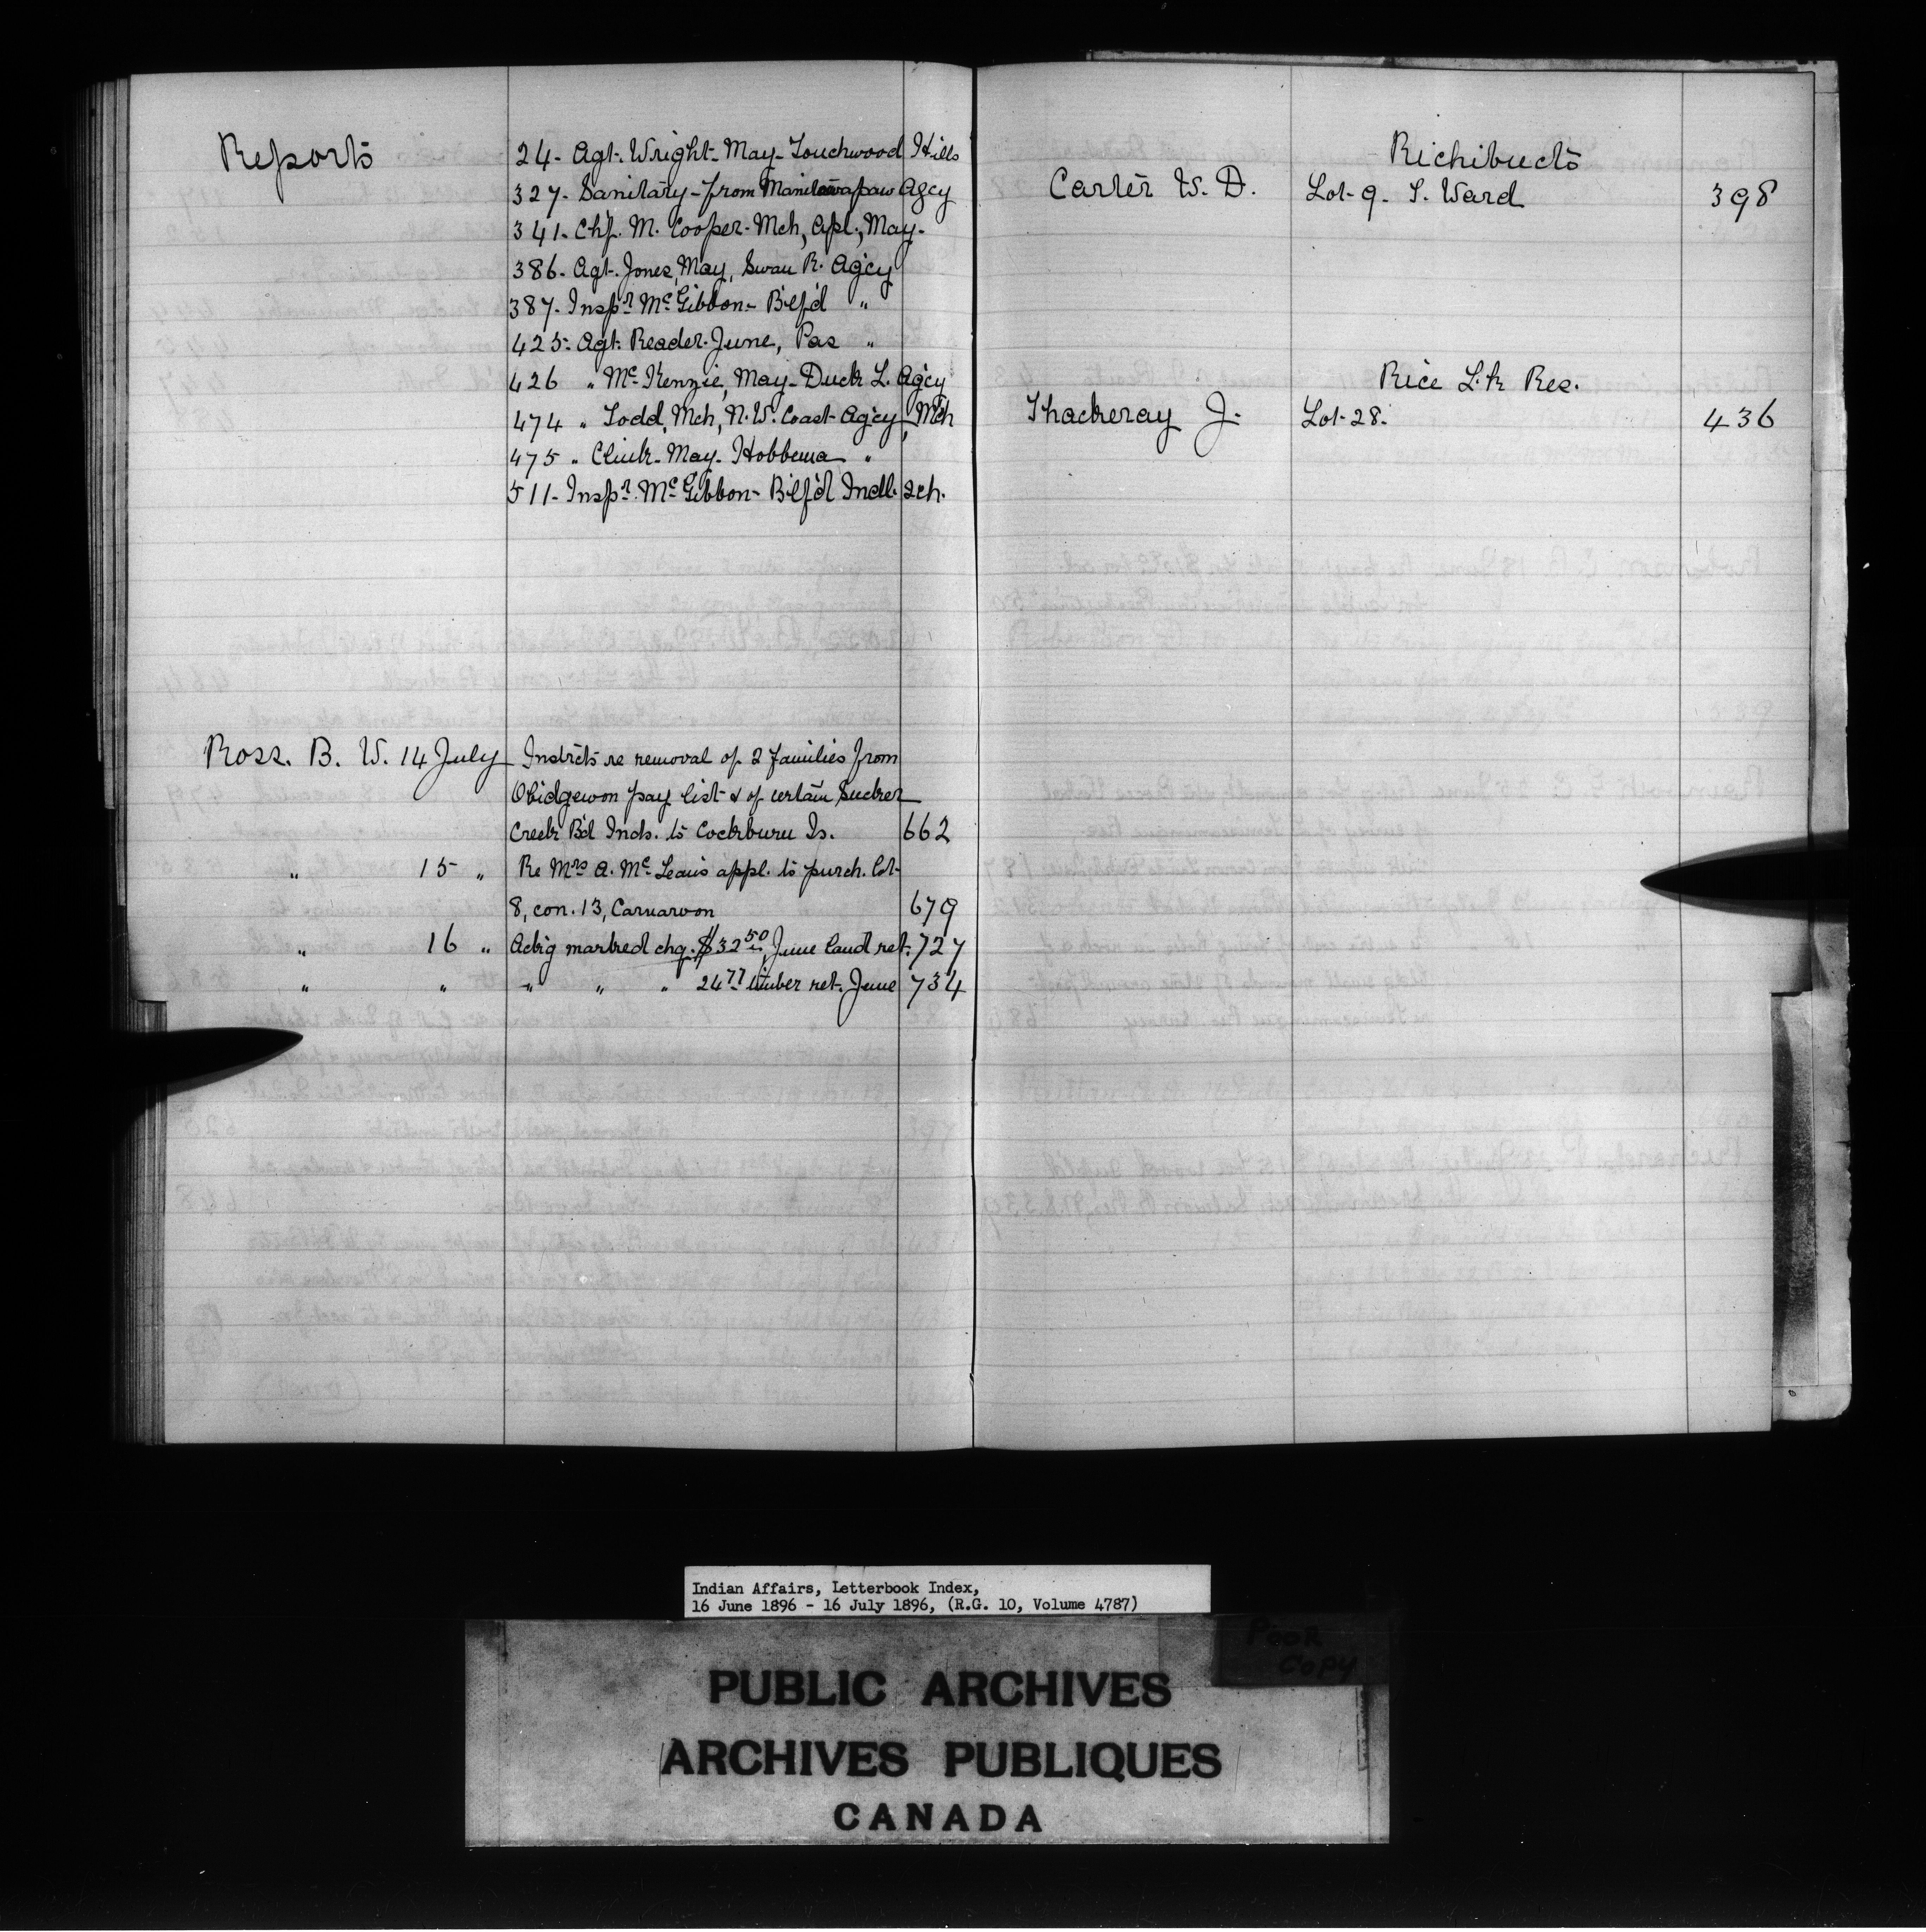 Reports
24- Agt. Wright- May- Touchwood Hills
327- Sanitary- from Manitowapaw Agcy
341- Chf. M. Cooper- Mch, Apl., May-
386- Agt. Jones, May, Swan R. Agcy
387- Inspr. McGibbon- B'lf'd "
425- Agt. Reader- June, Pas "
426 " McKenzie, May- Duck L. Agcy
474 " Todd, Mch, N.W. Coast Agcy, Mch
475 " Clink- May- Hobbema "
511- Inspr. McGibbon- B'lf'd Indl. Sch.
Ross. B. W. 14 July Instrcts re removal of 2 families from
Obidgewon pay list & of certain Sucker
Creek B'd Inds. to Cockburn Is. 662
" 15 " Re Mrs A. McLean's appl. to purch. lot
8, con. 13, Carnarvon 679
" 16 " Ackg marked chq. $32.50, June land ret. 727
" " " " " 24.77 timber ret. June 734
Richibucto
Carter W. D. Lot 9. S. Ward 398
Rice Lk Res.
Thackeray J. Lot 28. 436
Indian Affairs, Letterbook Index,
16 June 1896 - 16 July 1896, (R.G. 10, Volume 4787)
POOR
COPY
PUBLIC ARCHIVES
ARCHIVES PUBLIQUES
CANADA